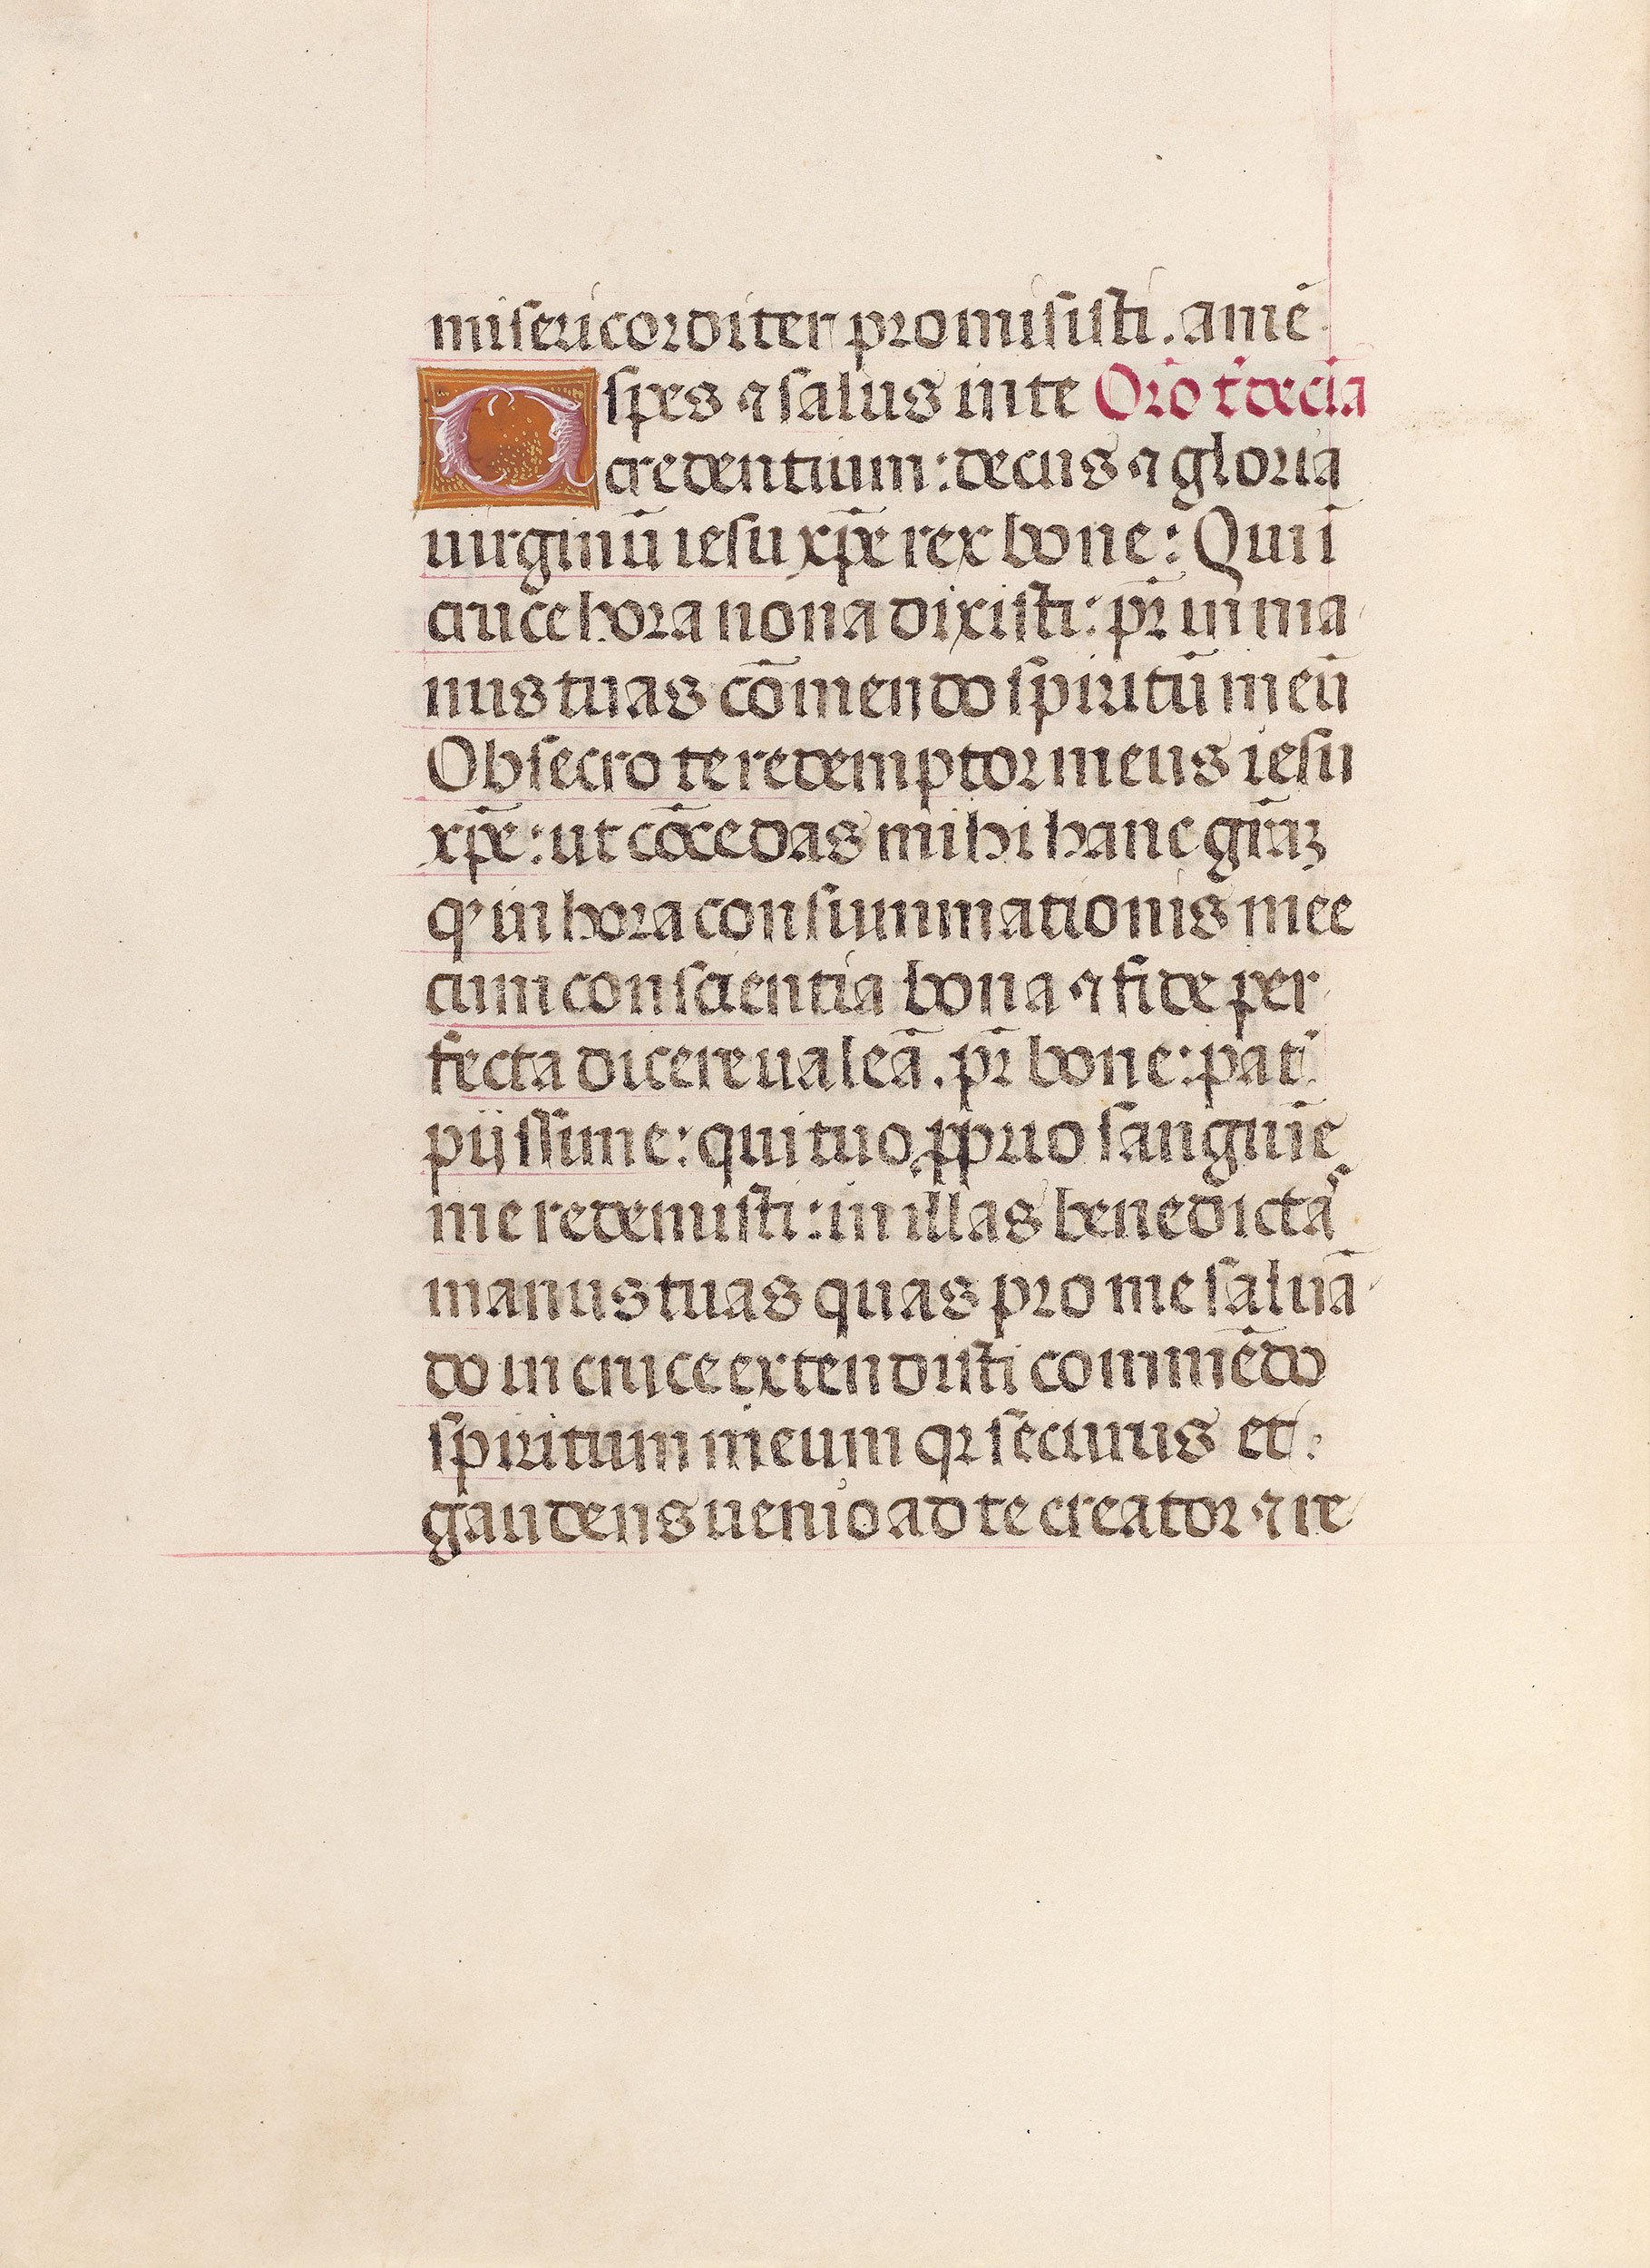 misericorditer promisisti. amē
O spes ⁊ salus in te Orō t̄decīa
credentium: decus ⁊ gloria
uirginū iesu xp̄e rex bone: Qui ī
cruce hora nona dixisti: pr̄ in ma
nus tuas cōmendo spiritū meū
Obsecro te redemptor meus iesu
xp̄e: ut cōcedas mihi hanc gr̄aꝫ
q' in hora consummationis mee
cum conscientia bona ⁊ fide per
fecta dicere ualeā. pr̄ bone: pat'
pijssime: qui tuo ꝓprio sanguīe
me redemisti: in illas benedictas
manus tuas quas pro me saluā
do in cruce extendisti commēdo
spiritum meum qr securus et
gaudens uenio ad te creator ⁊ re